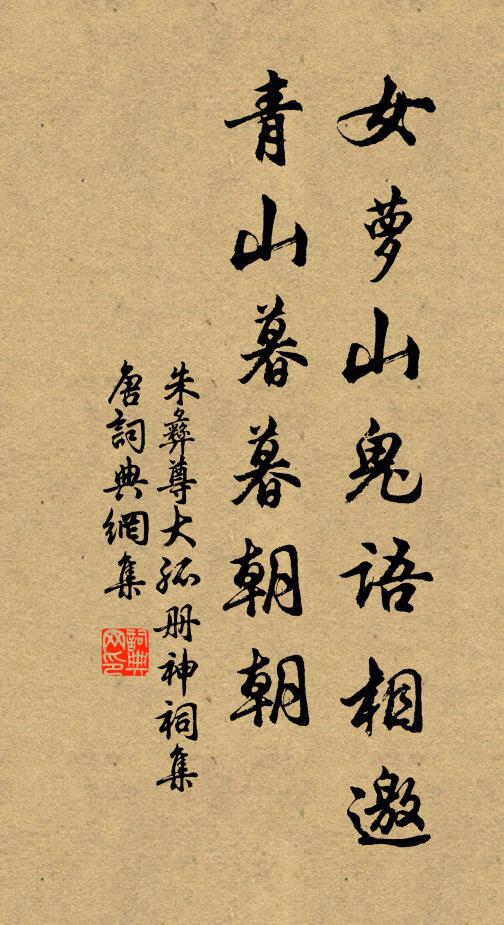 女萝山鬼语相邀
青山暮暮朝朝
朱彝尊大孤册神祠集
唐詞典網集
詞典网印